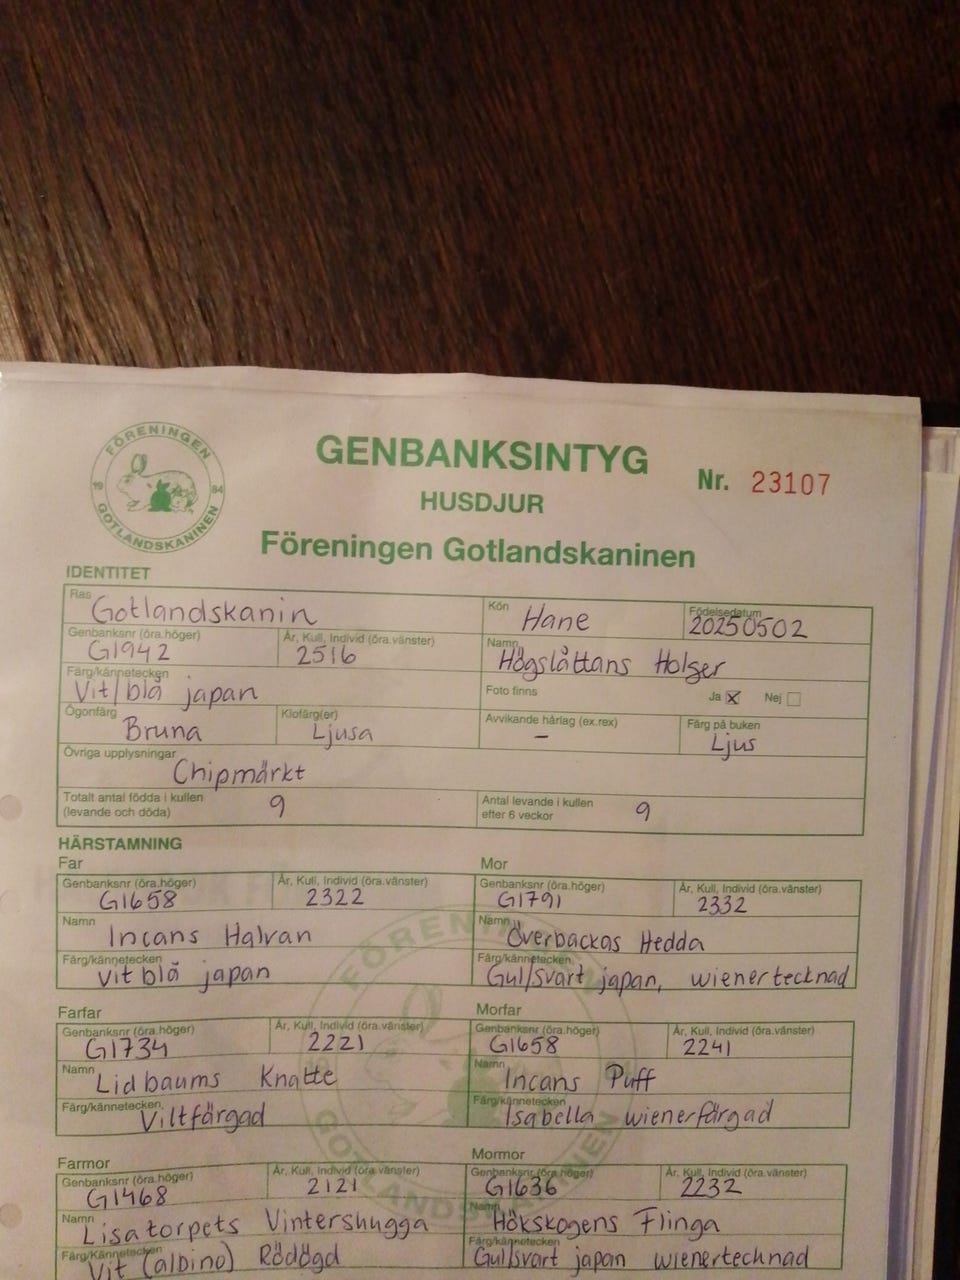 FÖRENINGEN
1984
GOTLANDSKANINEN
GENBANKSINTYG
HUSDJUR
Föreningen Gotlandskaninen
Nr. 23107
IDENTITET
Ras Gotlandskanin Kön Hane Födelsedatum 20250502
Genbanksnr (öra.höger) G1942 År, Kull, Individ (öra.vänster) 2516 Namn Högslättans Holger
Färg/kännetecken Vit/blå japan Foto finns Ja ☒ Nej ☐
Ögonfärg Bruna Klofärg(er) Ljusa Avvikande hårlag (ex.rex) – Färg på buken Ljus
Övriga upplysningar Chipmärkt
Totalt antal födda i kullen (levande och döda) 9 Antal levande i kullen efter 6 veckor 9
HÄRSTAMNING
Far Mor
Genbanksnr (öra.höger) G1658 År, Kull, Individ (öra.vänster) 2322 Genbanksnr (öra.höger) G1791 År, Kull, Individ (öra.vänster) 2332
Namn Incans Halvan Namn Överbackas Hedda
Färg/kännetecken vit blå japan Färg/kännetecken Gul/svart japan, wienertecknad
Farfar Morfar
Genbanksnr (öra.höger) G1734 År, Kull, Individ (öra.vänster) 2221 Genbanksnr (öra.höger) G1658 År, Kull, Individ (öra.vänster) 2241
Namn Lidbaums Knatte Namn Incans Puff
Färg/kännetecken Viltfärgad Färg/kännetecken Isabella wienerfärgad
Farmor Mormor
Genbanksnr (öra.höger) G1468 År, Kull, Individ (öra.vänster) 2121 Genbanksnr (öra.höger) G1636 År, Kull, Individ (öra.vänster) 2232
Namn Lisatorpets Vintershugga Namn Hökskogens Flinga
Färg/Kännetecken Vit (albino) Rödögd Färg/kännetecken Gul/svart japan wienertecnad
FÖRENINGEN
GOTLANDSKANINEN